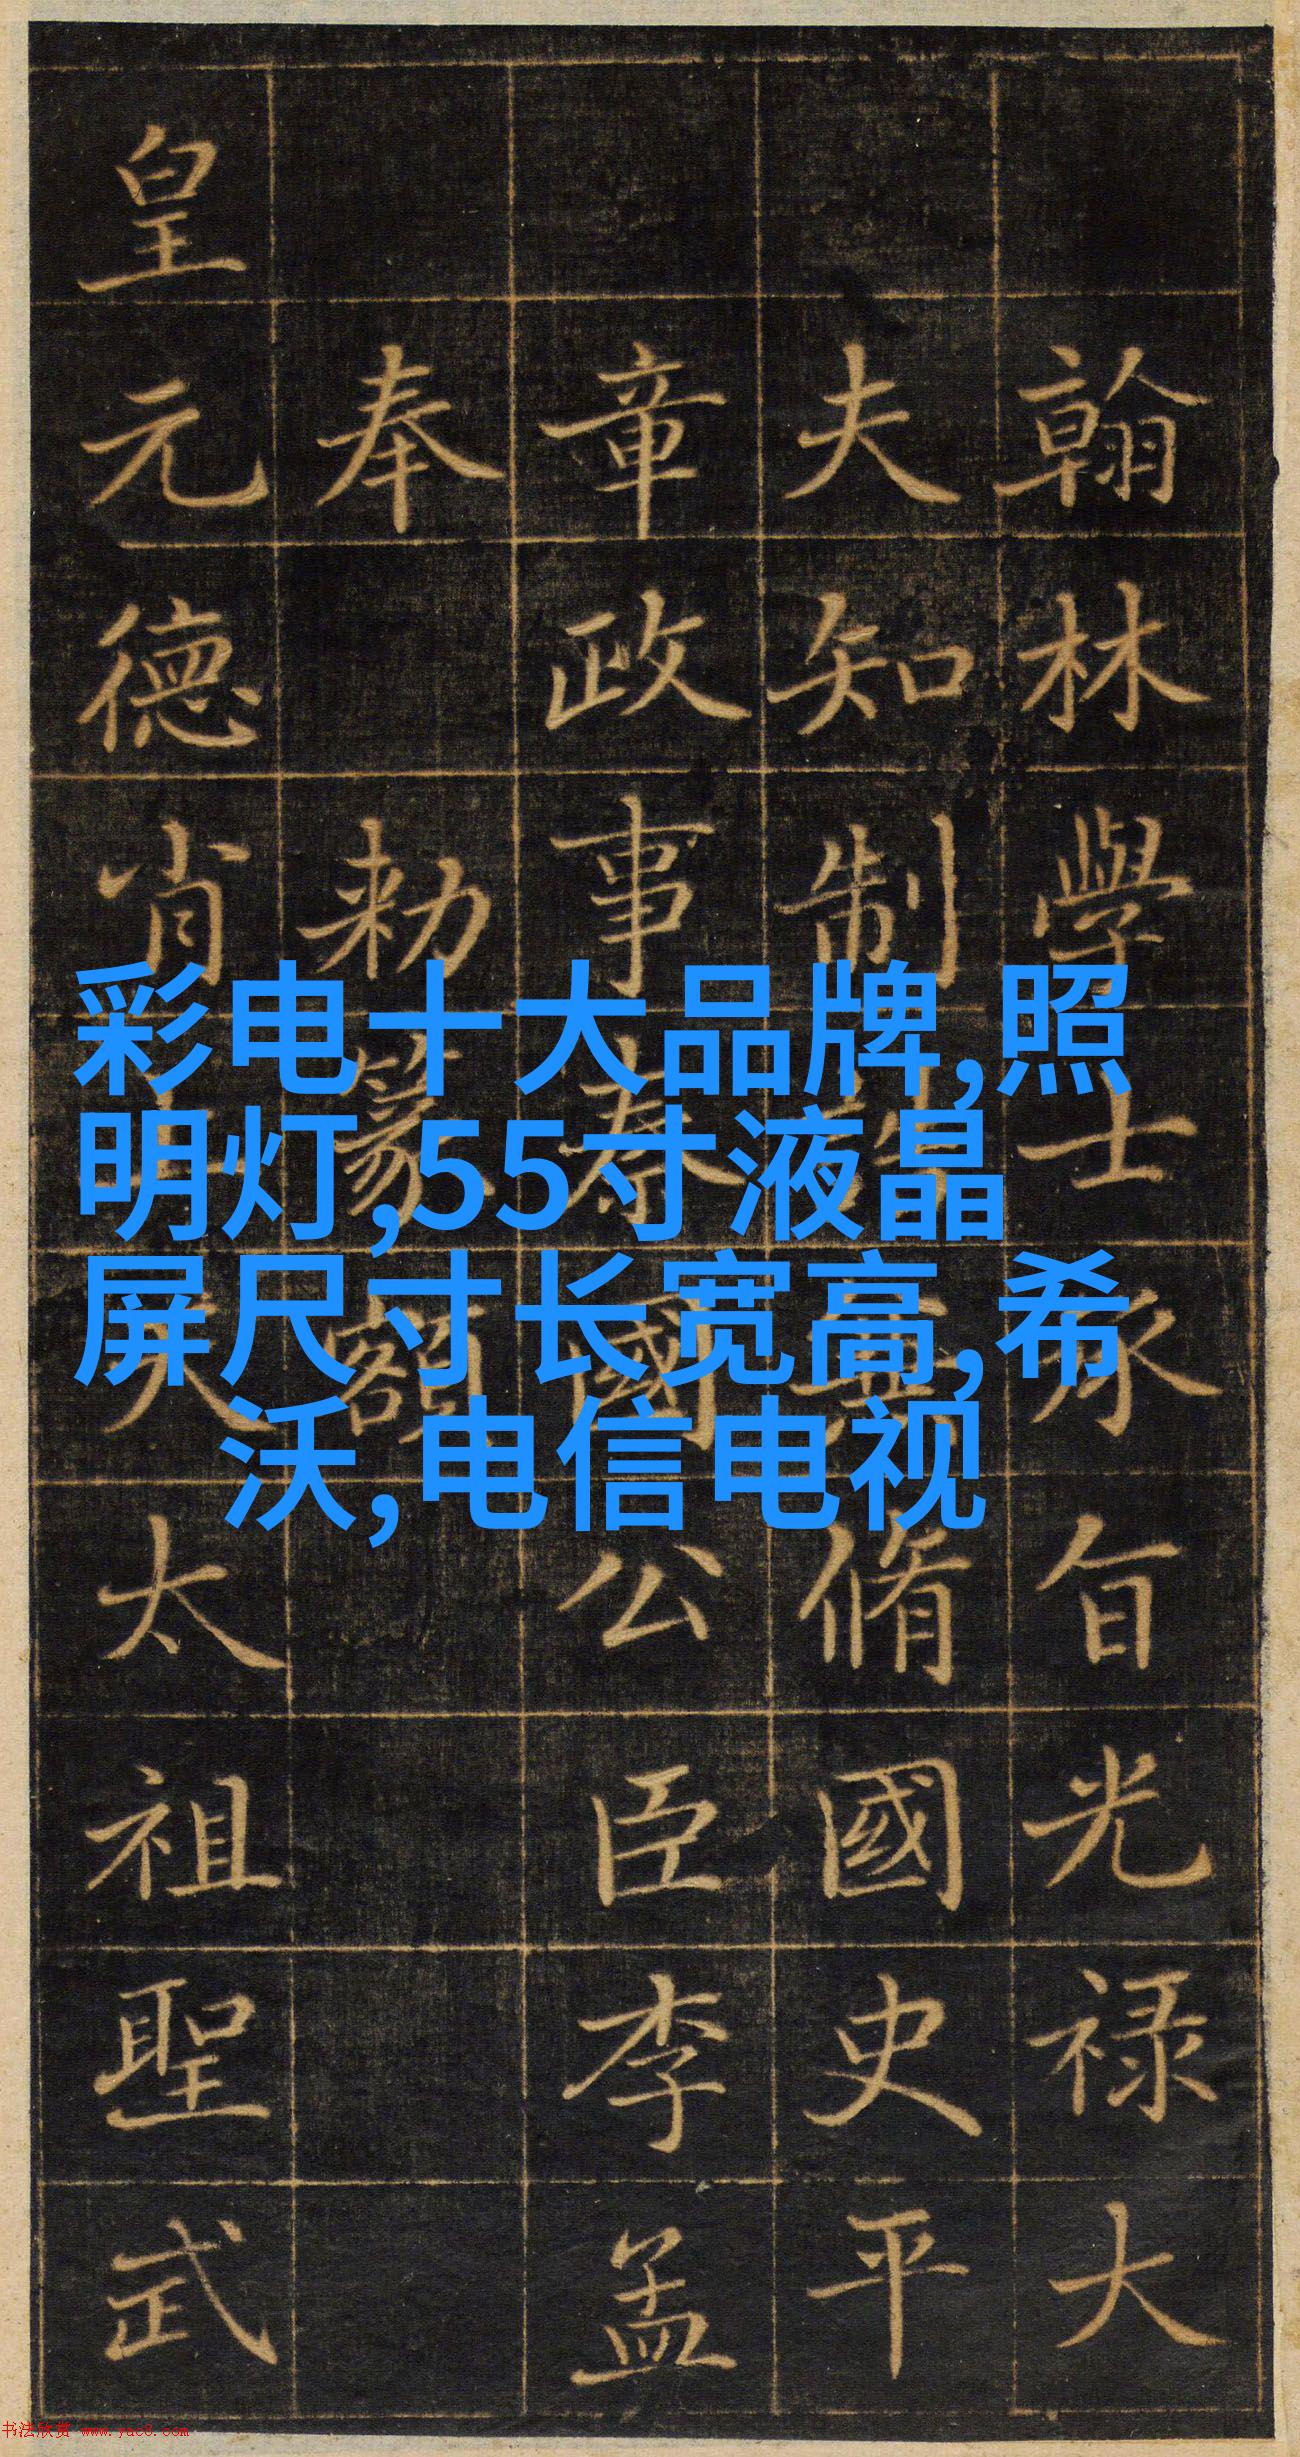 翰林學士承旨光禄大
夫知制脩國史平
章政事秦國公臣李孟
奉
勑篆額
皇元德肖天太祖聖武
彩电十大品牌,照
明灯,55寸液晶
屏尺寸长宽高,希
沃,电信电视
书法欣赏 www.yac8.com